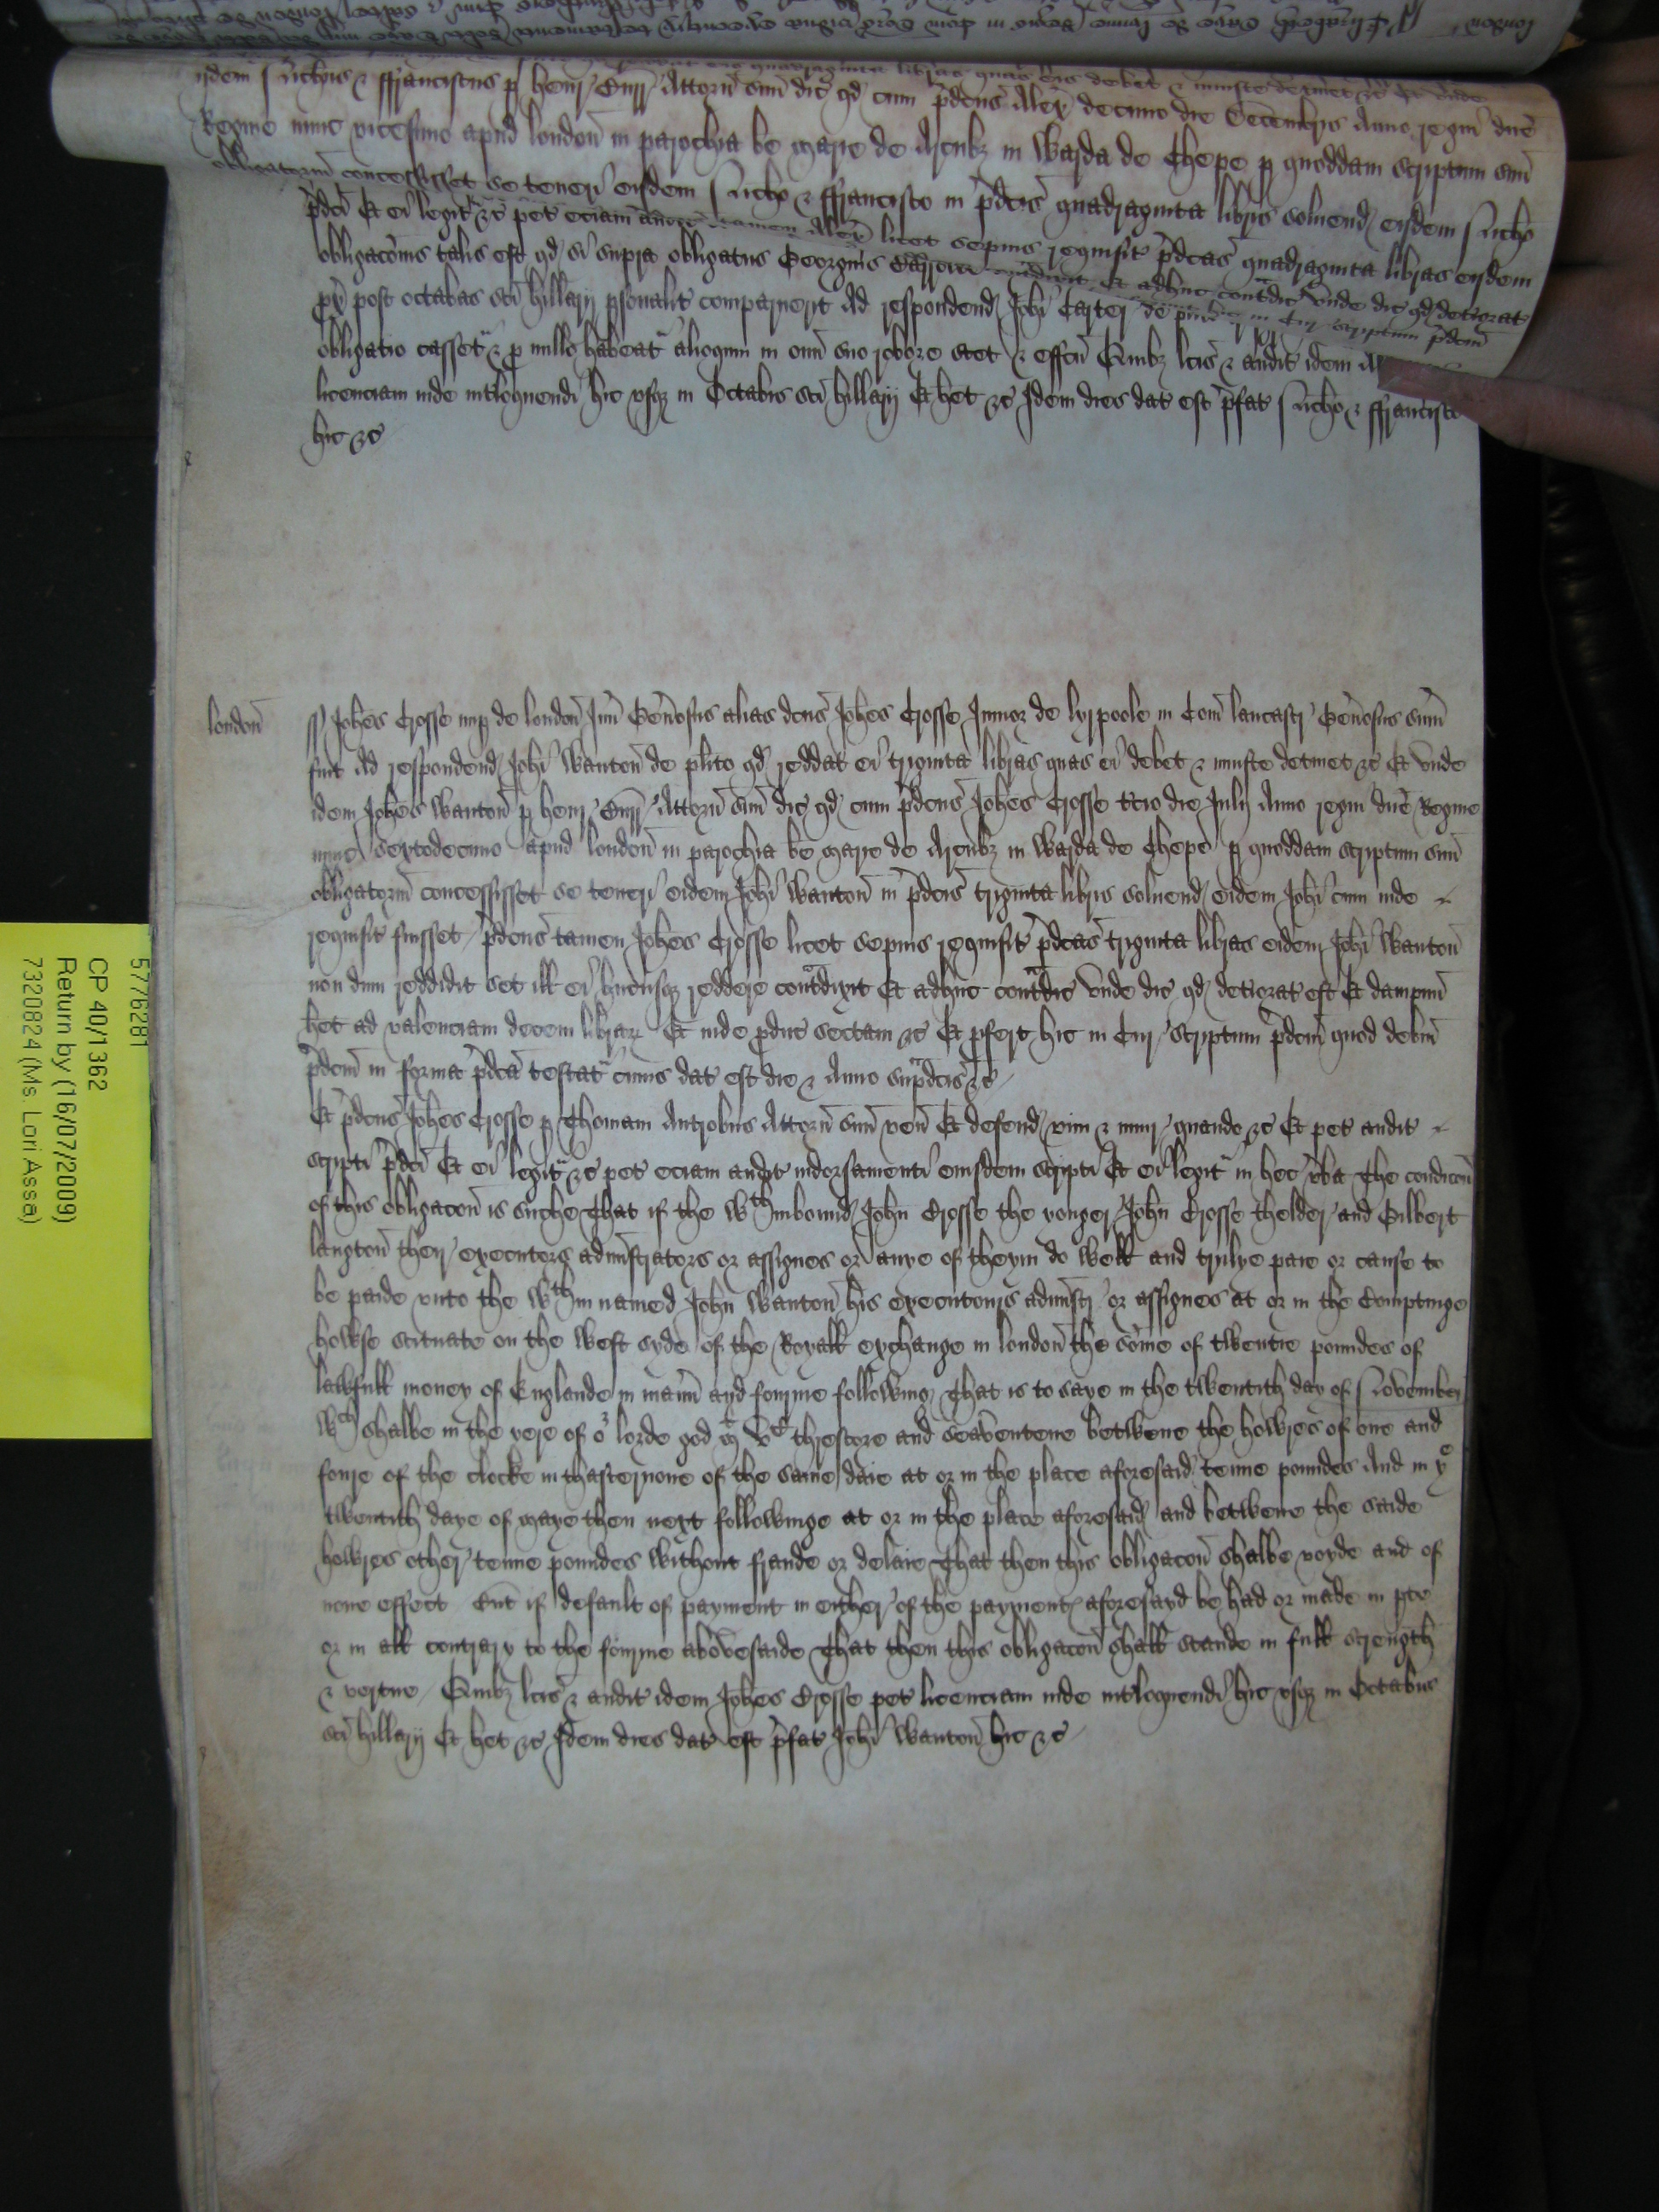 ijdem Nichus & ffranciscus p Henr Burr Attorn suu dic qd cum pdcus Alex decimo die Decembris Anno regni dne
Regine nunc vicesimo apud london in parochia be Marie de Arcubz in Warda de Chepe p quoddam scriptum suu
obligatoriu concessisset se teneri eisdem Nicho & ffrancisco in pdcis quadraginta libris solvend eisdem Nicho
pdci Et ei legit &c pet eciam
tamen Alex licet sepius requisit pdcas quadraginta libras eisdem
obligacois talis est qd si supra obligatus Georgius
et adhuc contradic unde dic qd deteriorat
px post octabas sci Hillarij psonalit comparuerit Ad respondend Johi Carter de
in Cur scriptum pdcm
obligatio casset & p nullo habeat alioquin in omi suo robore stet & effcu Quibz lcis & audit idem
licenciam inde intloquendi hic usqz in Octabis sci Hillarij Et het &c Idem dies dat est pfat Nicho & ffrancisco
hic &c
london
ss Johes Crosse nup de london Jun Gen̄osus alias dcus Johes Crosse Junior de lyrpoole in Com lancastr Gen̄osus sum
fuit Ad respondend Johi Wanton de plito qd reddat ei triginta libras quas ei debet & iniuste detinet &c Et unde
idem Johes Wanton p Henr Burr Attorn suu dic qd cum pdcus Johes Crosse tcio die Julij Anno regni dne Regine
nunc sextodecimo apud london in parochia be Marie de Arcubz in Warda de Chepe p quoddam scriptum suu
obligatoriu concessisset se teneri eidem Johi Wanton in pdcis triginta libris solvend eidem Johi cum inde
requisit fuisset pdcus tamen Johes Crosse licet sepius requisit pdcas triginta libras eidem Johi Wanton
non dum reddidit set ill ei hucusqz reddere contradixit Et adhuc contradic unde dic qd deteriorat est Et dampnu
het ad valenciam decem librar Et inde pduc sectam &c Et pfert hic in Cur scriptum pdcm quod debm
pdcm in forma pdca testat cuius dat est die & Anno supradcis &c
Et pdcus Johes Crosse p Thomam Antrobus Attorn suu ven Et defend vim & iniur quando &c Et pet audit
scripti pdci Et ei legit &c pet eciam audit indorsamenti eiusdem scripti Et ei legit in hec vba The condicon
of this obligacon is suche That if the wthinbound John Crosse the yonger John Crosse thelder and Gilbert
langton their executors adminstrators or assignes or anye of theym do well and trulye paie or cause to
be paide unto the wthin named John Wanton his executours adminstr or assignes at or in the Comptinge
howse scituate on the west syde of the Royall exchange in london the some of twentie poundes of
lawfull money of Englande in mann and fourme following That is to saye in the twentith day of November
wch shalbe in the yere of or lorde god m vc threscore and seaventene betwene the howres of one and
foure of the clocke in thafternone of the same daie at or in the place aforesaid tenne poundes And in ye
twentith daye of Maye then next followinge at or in the place aforesaid and betwene the saide
howres other tenne poundes without fraude or delaie That then this obligacon shalbe voyde and of
none effect But if default of payment in either of the payment aforesayd be had or made in pte
or in all contrary to the fourme abovesaide That then this obligacon shall stande in full strength
& vertue Quibz lcis & audit idem Johes Crosse pet licenciam inde intloquendi hic usqz in Octabis
sci Hillarij Et het &c Idem dies dat est pfat Johi Wanton hic &c
5776281
CP 40/1362
Return by (16/07/2009)
7320824 (Ms. Lori Assa)